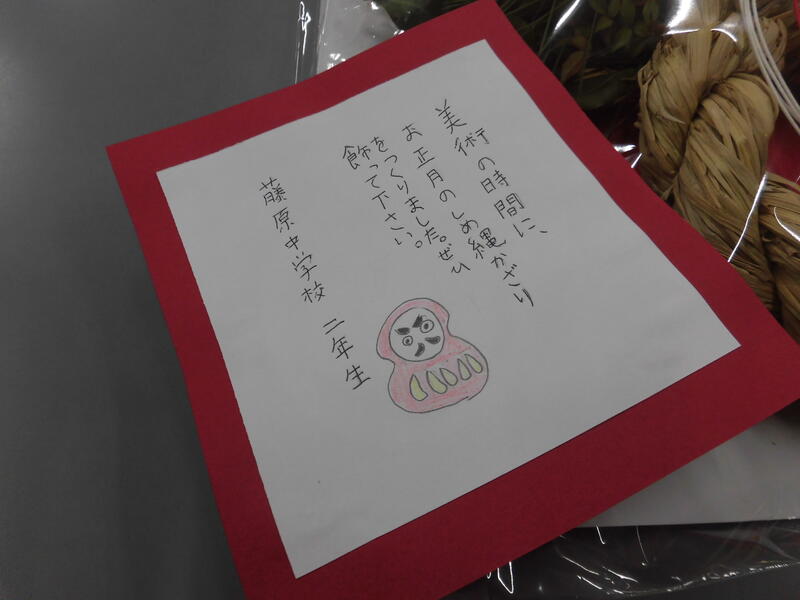 美術の時間に、
お正月のしめ縄かざり
をつくりました。ぜひ
飾って下さい。
藤原中学校 二年生